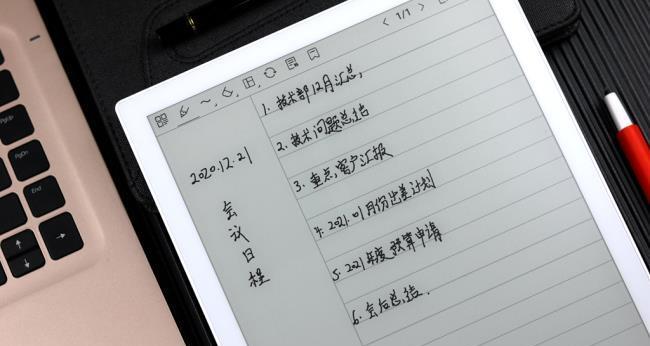 PgUp
PgDn
End
< 1/1 >
2020.12.21
会议日程
1. 技术部12月汇总,
2. 技术问题总结
3. 重点,客户汇报
4. 2021.01月份出差计划
5. 2021年度预算申请
6. 会后总结.